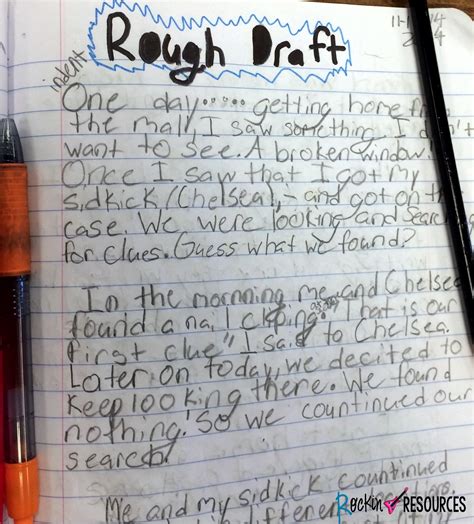 Rough Draft
indent
One day...... getting home
the mall, I saw something I
want to see. A broken window!
Once I saw that I got my
sidkick (Chelsea), and got on
case. We were looking and
for clues. Guess what we found?
In the mornning me and Chelsea
found a nail cliping. "That is our
first clue" I said to Chelsea.
Later on today, we decited to
keep looking there. We found
nothing. So we countinued our
search.
Me and my sidkick countinued
Rockin RESOURCES